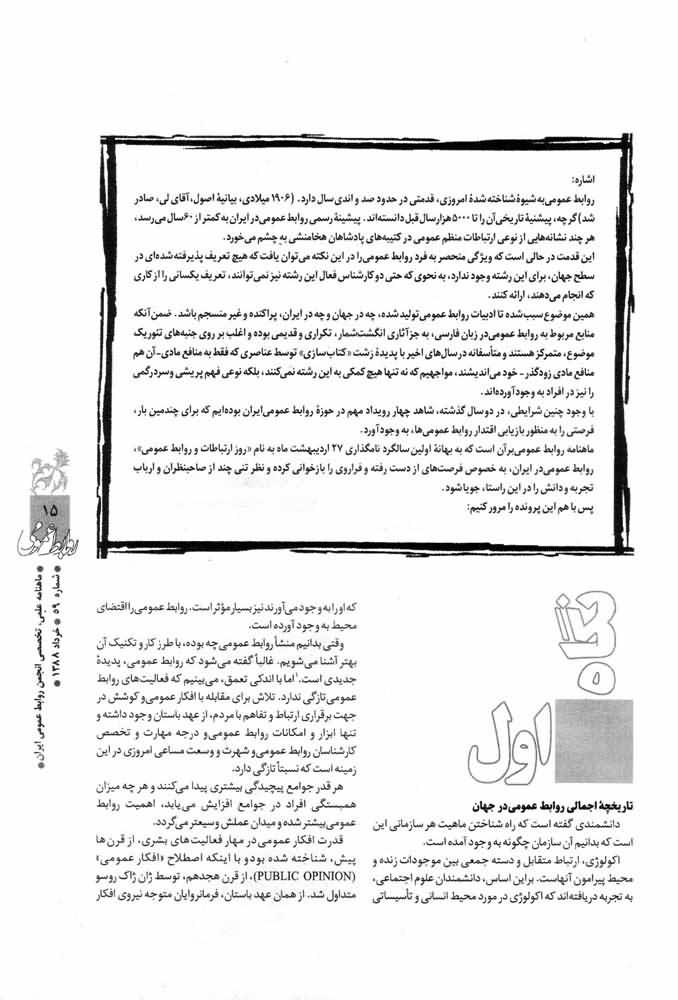 اشاره:
روابط عمومی به شیوهٔ شناخته شدهٔ امروزی، قدمتی در حدود صد و اندی سال دارد. (۱۹۰۶ میلادی، بیانیهٔ اصول، آقای لی، صادر
شد) گرچه، پیشنیهٔ تاریخی آن را تا ۵۰۰۰ هزار سال قبل دانسته‌اند. پیشینهٔ رسمی روابط عمومی در ایران به کمتر از ۶۰ سال می‌رسد،
هر چند نشانه‌هایی از نوعی ارتباطات منظم عمومی در کتیبه‌های پادشاهان هخامنشی به چشم می‌خورد.
این قدمت در حالی است که ویژگی منحصر به فرد روابط عمومی را در این نکته می‌توان یافت که هیچ تعریف پذیرفته شده‌ای در
سطح جهان، برای این رشته وجود ندارد، به نحوی که حتی دو کارشناس فعال این رشته نیز نمی‌توانند، تعریف یکسانی را از کاری
که انجام می‌دهند، ارائه کنند.
همین موضوع سبب شده تا ادبیات روابط عمومی تولید شده، چه در جهان و چه در ایران، پراکنده و غیر منسجم باشد. ضمن آنکه
منابع مربوط به روابط عمومی در زبان فارسی، به جز آثاری انگشت‌شمار، تکراری و قدیمی بوده و اغلب بر روی جنبه‌های تئوریک
موضوع، متمرکز هستند و متأسفانه در سال‌های اخیر با پدیدهٔ زشت «کتاب‌سازی» توسط عناصری که فقط به منافع مادی-آن هم
منافع مادی زودگذر- خود می‌اندیشند، مواجهیم که نه تنها هیچ کمکی به این رشته نمی‌کنند، بلکه نوعی فهم پریشی و سردرگمی
را نیز در افراد به وجود آورده‌اند.
با وجود چنین شرایطی، در دو سال گذشته، شاهد چهار رویداد مهم در حوزهٔ روابط عمومی ایران بوده‌ایم که برای چندمین بار،
فرصتی را به منظور بازیابی اقتدار روابط عمومی‌ها، به وجود آورد.
ماهنامه روابط عمومی برآن است که به بهانهٔ اولین سالگرد نامگذاری ۲۷ اردیبهشت ماه به نام «روز ارتباطات و روابط عمومی»،
روابط عمومی در ایران، به خصوص فرصت‌های از دست رفته و فراروی را بازخوانی کرده و نظر تنی چند از صاحبنظران و ارباب
تجربه و دانش را در این راستا، جویا شود.
پس با هم این پرونده را مرور کنیم:
۱۵
روابط عمومی
ماهنامه علمی، تخصصی انجمن روابط عمومی ایران
شماره ۵۹ خرداد ۱۳۸۸
اول
تاریخچهٔ اجمالی روابط عمومی در جهان
دانشمندی گفته است که راه شناختن ماهیت هر سازمانی این
است که بدانیم آن سازمان چگونه به وجود آمده است.
اکولوژی، ارتباط متقابل و دسته جمعی بین موجودات زنده و
محیط پیرامون آنهاست. براین اساس، دانشمندان علوم اجتماعی،
به تجربه دریافته‌اند که اکولوژی در مورد محیط انسانی و تأسیساتی
که او را به وجود می‌آورند نیز بسیار مؤثر است. روابط عمومی را اقتضای
محیط به وجود آورده است.
وقتی بدانیم منشأ روابط عمومی چه بوده، با طرز کار و تکنیک آن
بهتر آشنا می‌شویم. غالباً گفته می‌شود که روابط عمومی، پدیدهٔ
جدیدی است.۱ اما با اندکی تعمق، می‌بینیم که فعالیت‌های روابط
عمومی تازگی ندارد. تلاش برای مقابله با افکار عمومی و کوشش در
جهت برقراری ارتباط و تفاهم با مردم، از عهد باستان وجود داشته و
تنها ابزار و امکانات روابط عمومی و درجه مهارت و تخصص
کارشناسان روابط عمومی و شهرت و وسعت مساعی امروزی در این
زمینه است که نسبتاً تازگی دارد.
هر قدر جوامع پیچیدگی بیشتری پیدا می‌کنند و هر چه میزان
همبستگی افراد در جوامع افزایش می‌یابد، اهمیت روابط
عمومی بیشتر شده و میدان عملش وسیعتر می‌گردد.
قدرت افکار عمومی در مهار فعالیت‌های بشری، از قرن‌ها
پیش، شناخته شده بود و با اینکه اصطلاح «افکار عمومی»
(PUBLIC OPINION)، از قرن هجدهم، توسط ژان ژاک روسو
متداول شد. از همان عهد باستان، فرمانروایان متوجه نیروی افکار